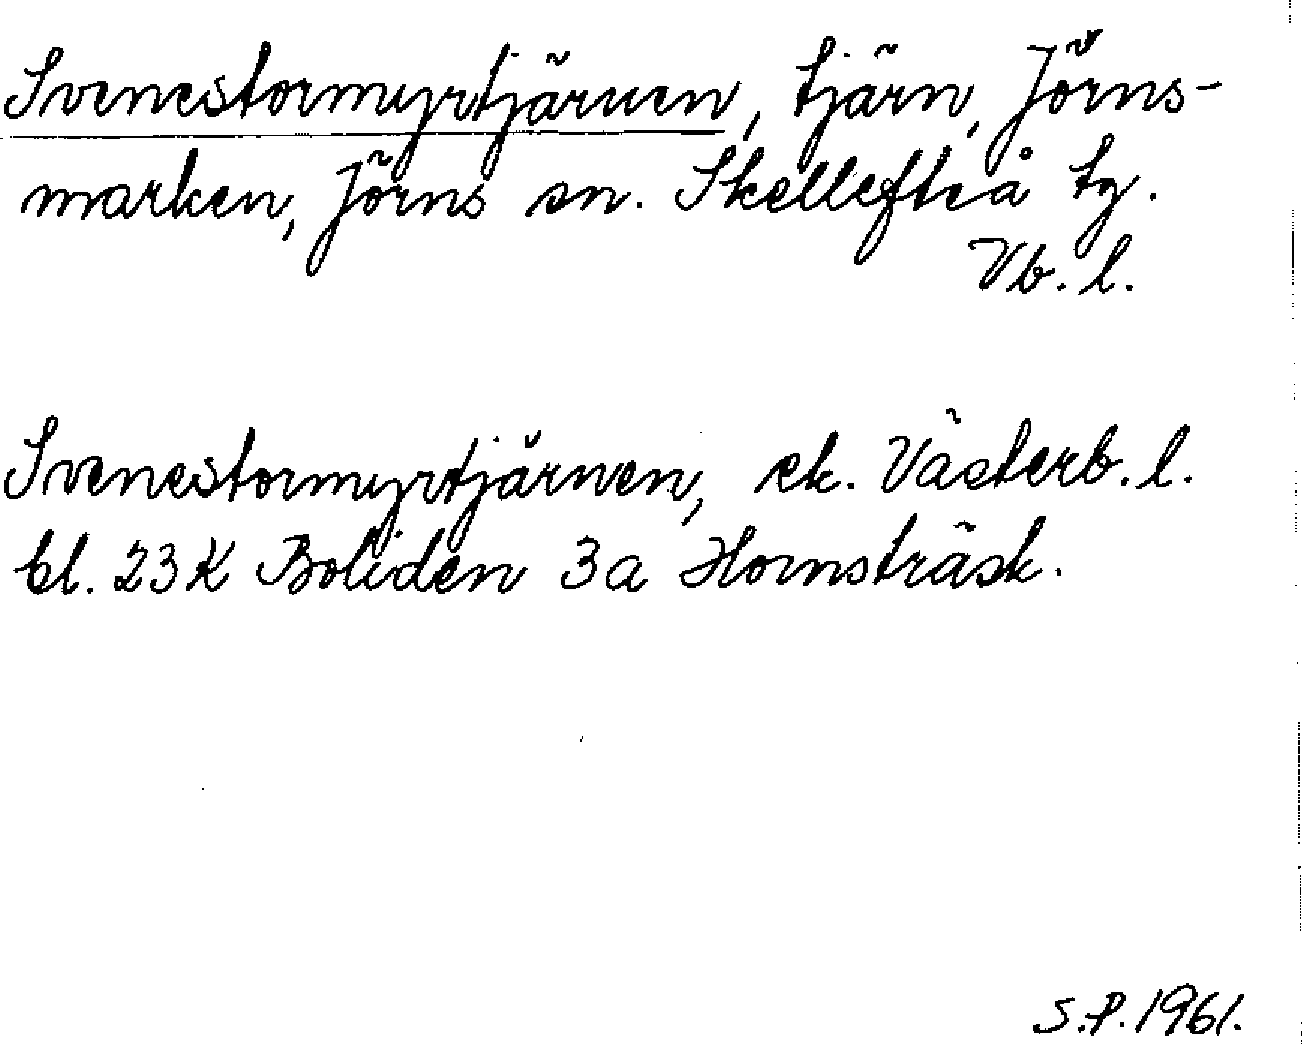 Svenestormyrtjärnen, tjärn, Jörns-
marken, Jörns sn. Skellefteå tg.
Vb. l.
Svenestormyrtjärnen, ek. Västerb. l.
bl. 23 K Boliden 3 a Hornsträsk.
S.P. 1961.